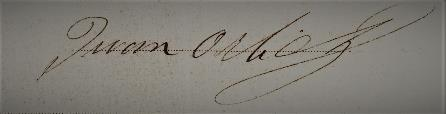 Juan Ortiz